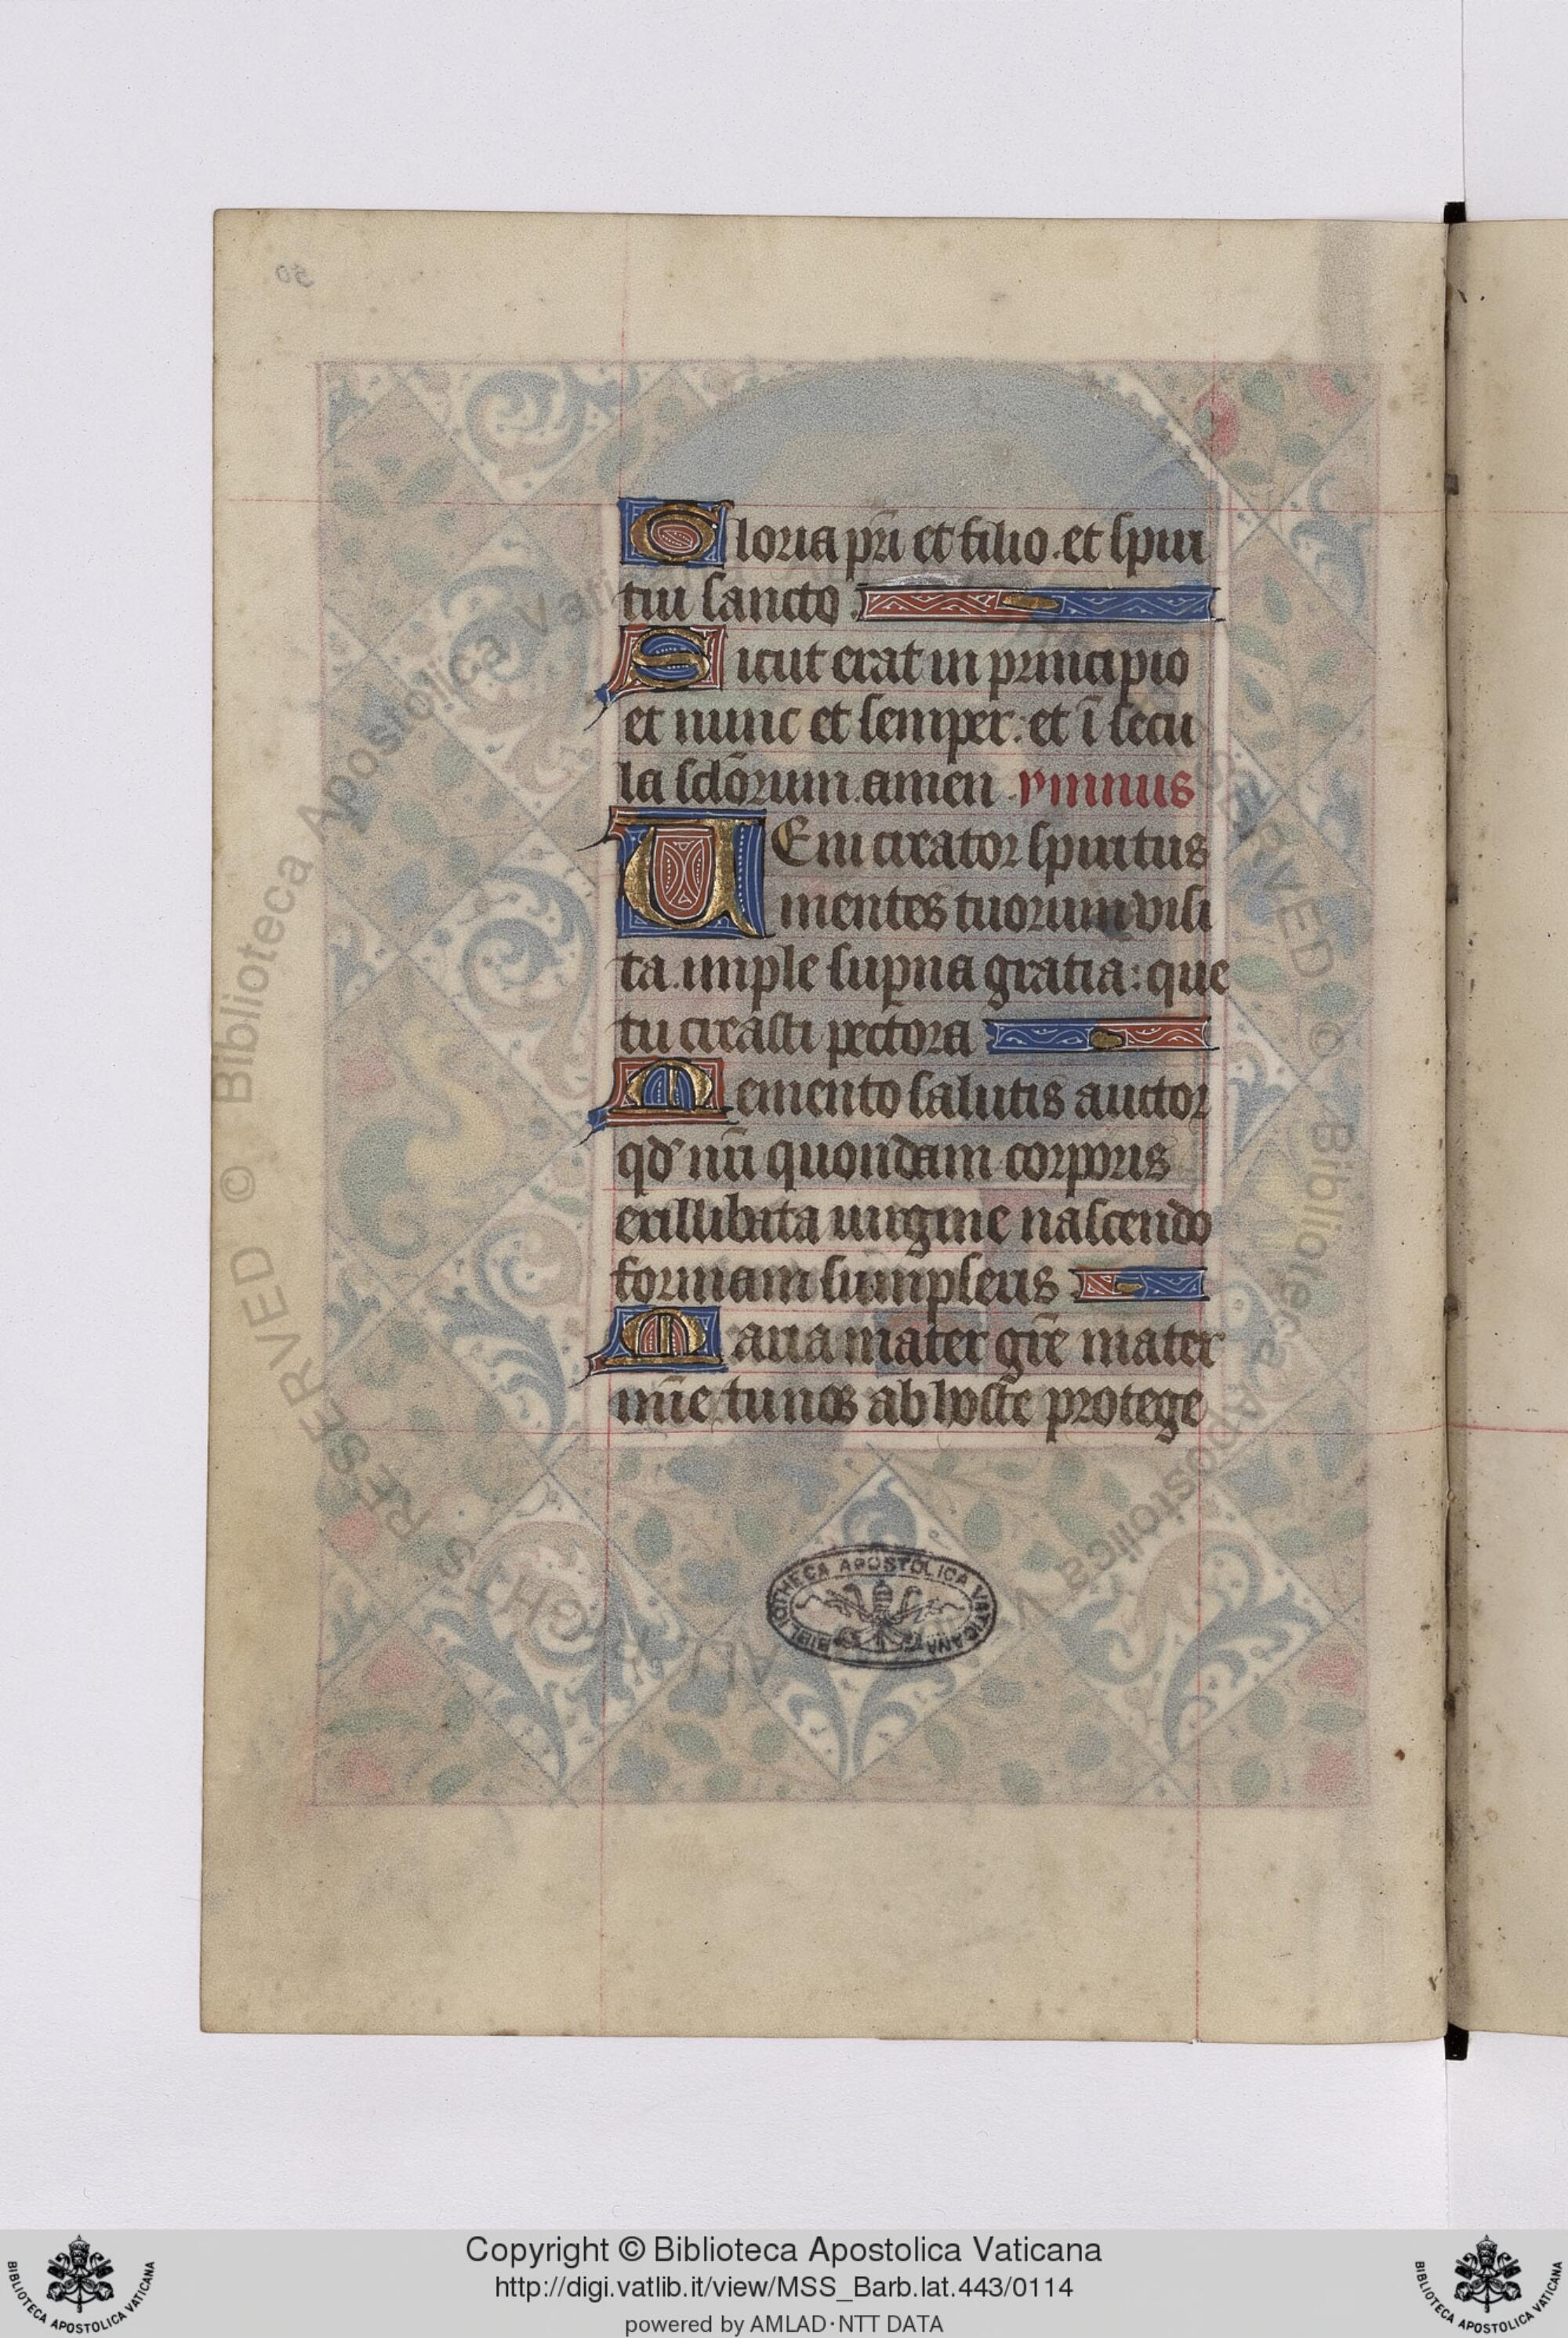 Gloria pri̅ et filio. et spiri
tui sancto.
Sicut erat in principio
et nunc et semper: et i̅ secu
la sclo̅rum. amen. ymnus
VEni creator spiritus
mentes tuorum visi
ta. imple supna gratia: que
tu creasti pectora
Memento salutis auctor
qd' nr̅i quondam corporis
exillibata uirgine nascendo
formam sum̅pseris
Maria mater gr̅e mater
mi̅e tu nos ab hoste protege
50
BIBLIOTHECA APOSTOLICA VATICANA
ALL RIGHTS RESERVED © Biblioteca Apostolica Vaticana
Copyright © Biblioteca Apostolica Vaticana
http://digi.vatlib.it/view/MSS_Barb.lat.443/0114
powered by AMLAD·NTT DATA
BIBLIOTECA APOSTOLICA VATICANA
BIBLIOTECA APOSTOLICA VATICANA